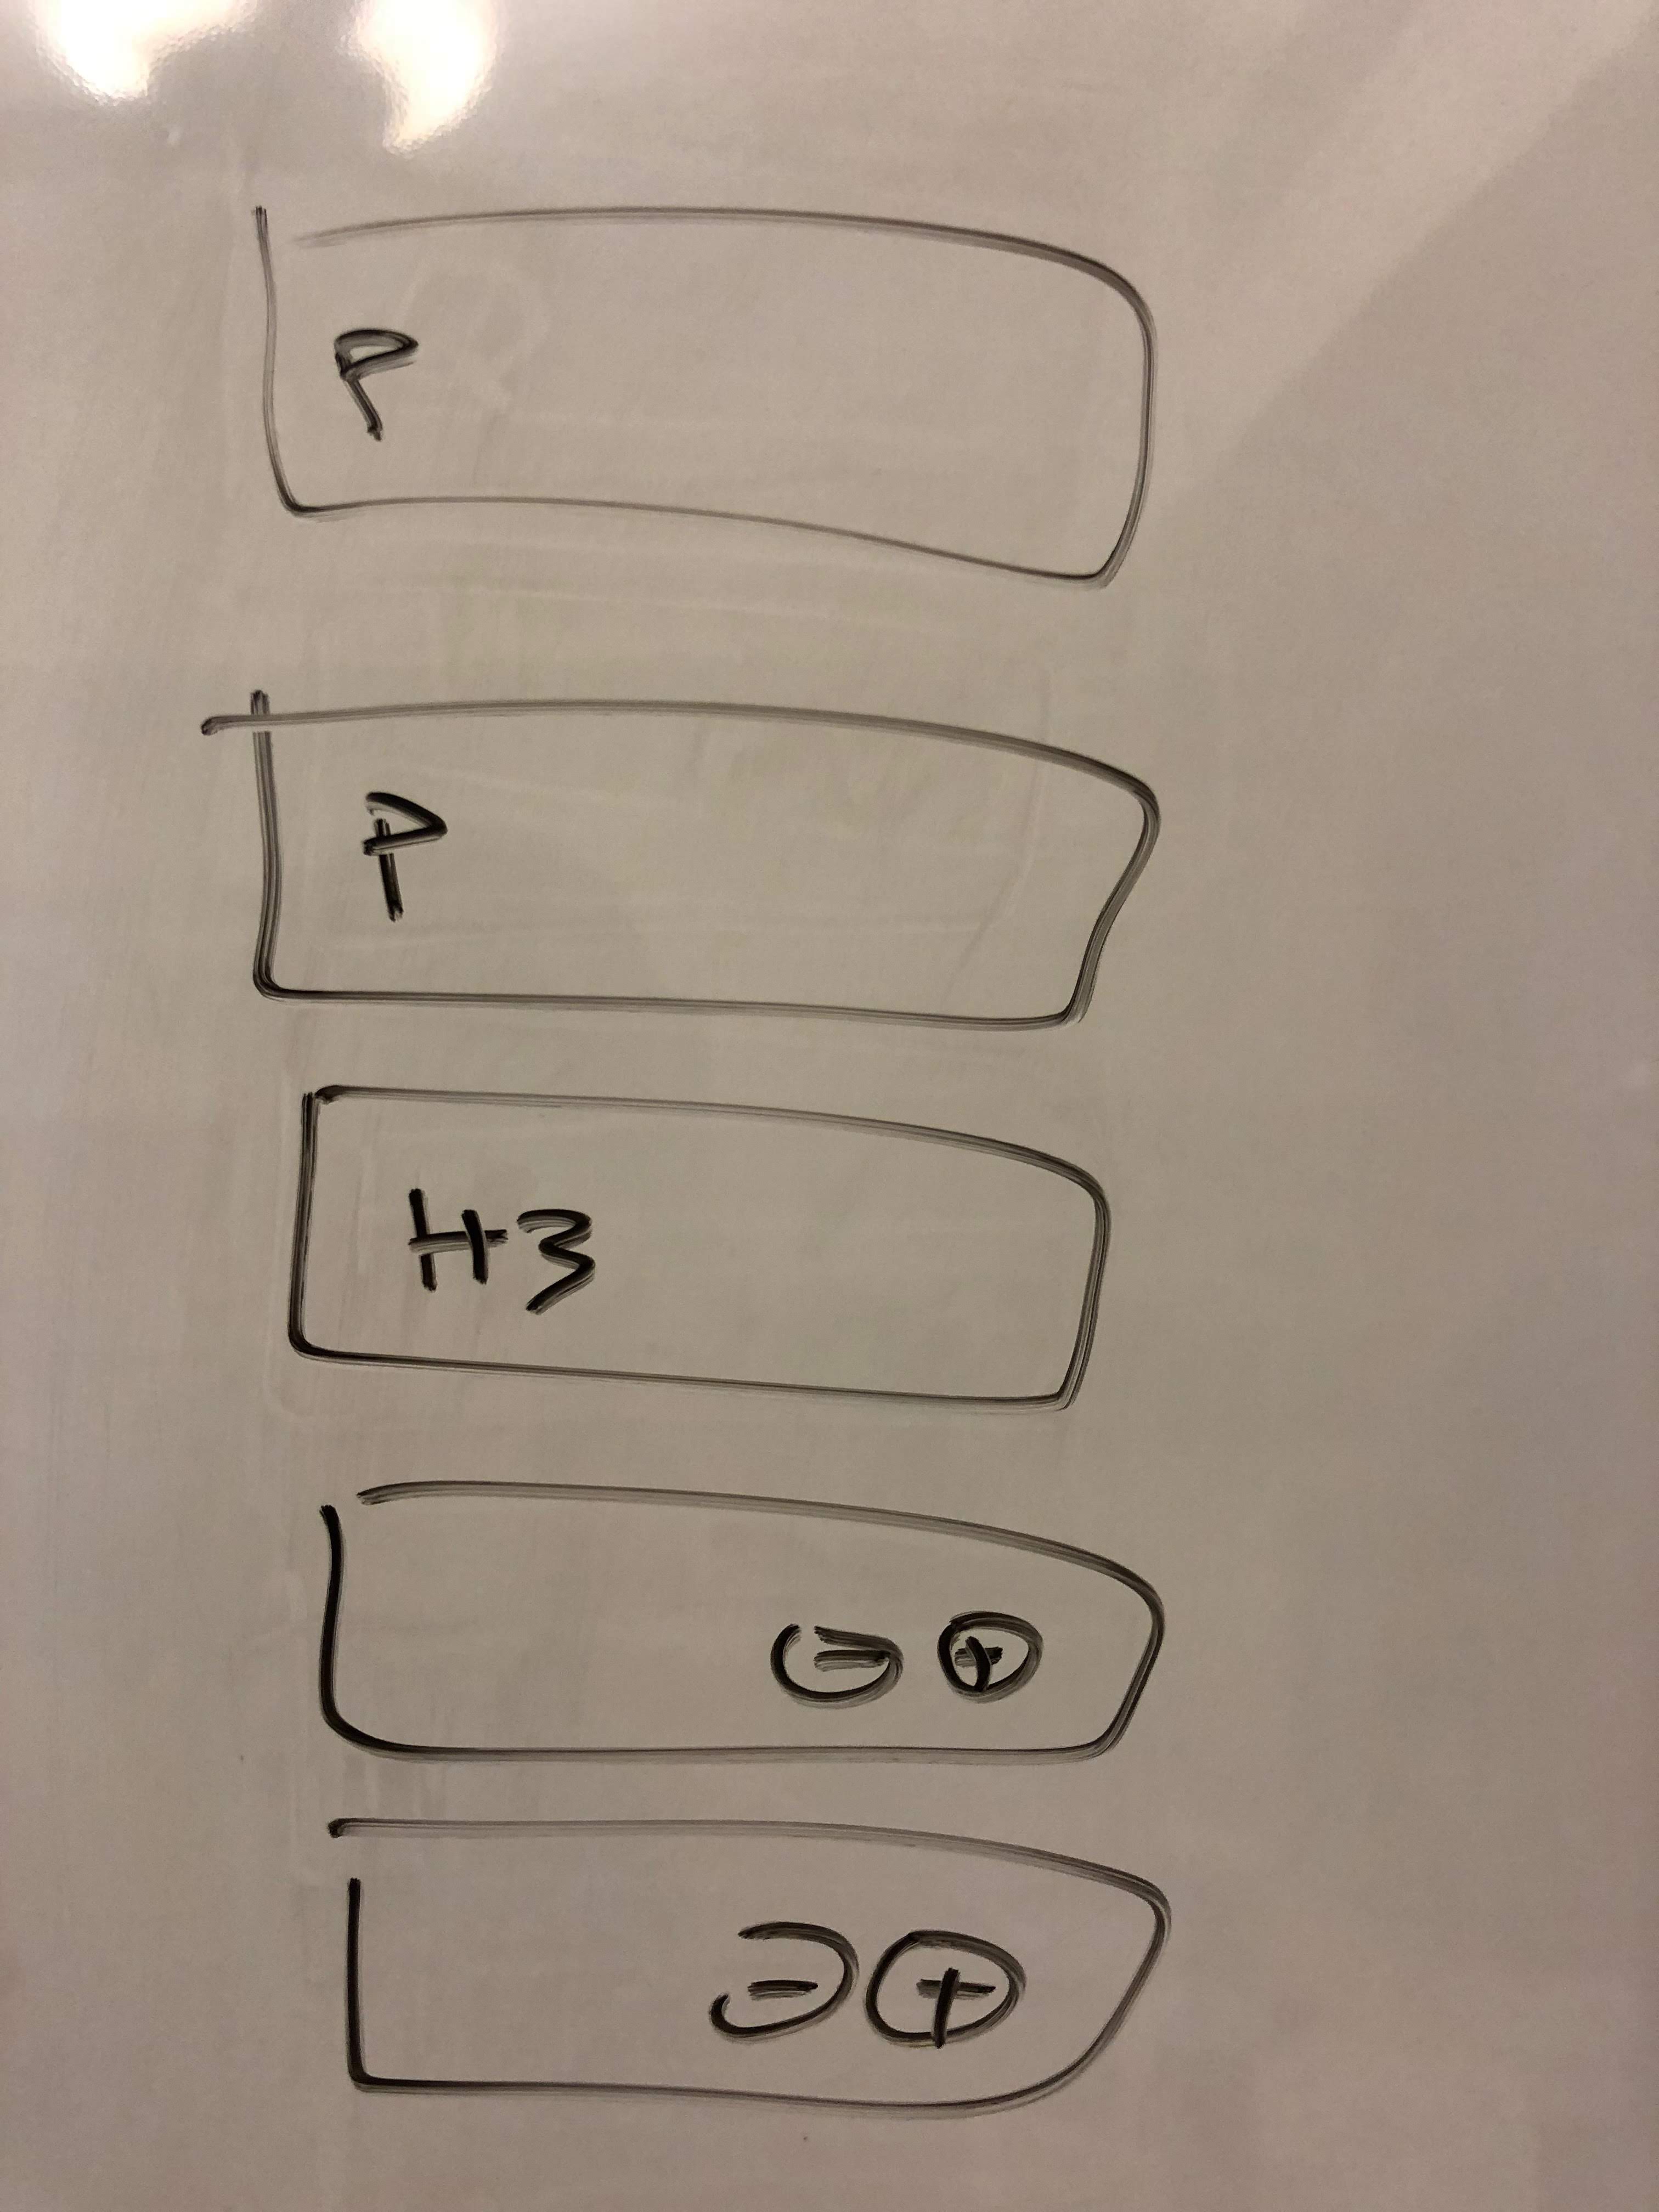 P
P
H3
⊖ ⊕
⊖ ⊕